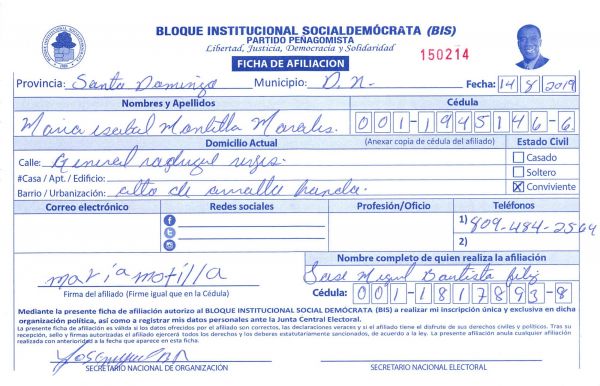 BLOQUE INSTITUCIONAL SOCIALDEMÓCRATA (BIS)
PARTIDO PEÑAGOMISTA
Libertad, Justicia, Democracia y Solidaridad
FICHA DE AFILIACION
150214
Provincia: Santo Domingo Municipio: D.N. Fecha: 14/8/2019
Nombres y Apellidos Cédula
Maria isabel Montilla Morales. 001-1945146-6
Domicilio Actual (Anexar copia de cédula del afiliado) Estado Civil
Calle: General
Casado
#Casa / Apt. / Edificio:
Soltero
Barrio / Urbanización: alto de
X Conviviente
Correo electrónico Redes sociales Profesión/Oficio Teléfonos
1) 809-484-2569
2)
Nombre completo de quien realiza la afiliación
maria motilla Jose Miguel Bautista feliz
Firma del afiliado (Firme igual que en la Cédula) Cédula: 001-1817893-8
Mediante la presente ficha de afiliación autorizo al BLOQUE INSTITUCIONAL SOCIAL DEMÓCRATA (BIS) a realizar mi inscripción única y exclusiva en dicha
organización política, así como a registrar mis datos personales ante la Junta Central Electoral.
La presente ficha de afiliación es válida si los datos ofrecidos por el afiliado son correctos, las declaraciones veraces y si el afiliado tiene el disfrute de sus derechos civiles y políticos. Tras su
recepción, sello y firmas autorizadas el afiliado ejercerá todos los derechos y los deberes estatutariamente sancionados, de acuerdo a la ley. La presente afiliación anula cualquier afiliación
realizada con anterioridad a la fecha que aparece en esta ficha.
SECRETARIO NACIONAL DE ORGANIZACIÓN SECRETARIO NACIONAL ELECTORAL